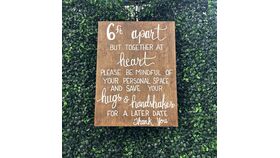 6ft apart
BUT TOGETHER AT
heart
PLEASE BE MINDFUL OF
YOUR PERSONAL SPACE
AND SAVE YOUR
hugs & handshakes
FOR A LATER DATE
Thank You